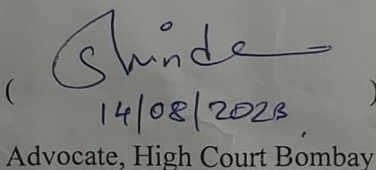 ( Shinde )
14/08/2023
Advocate, High Court Bombay